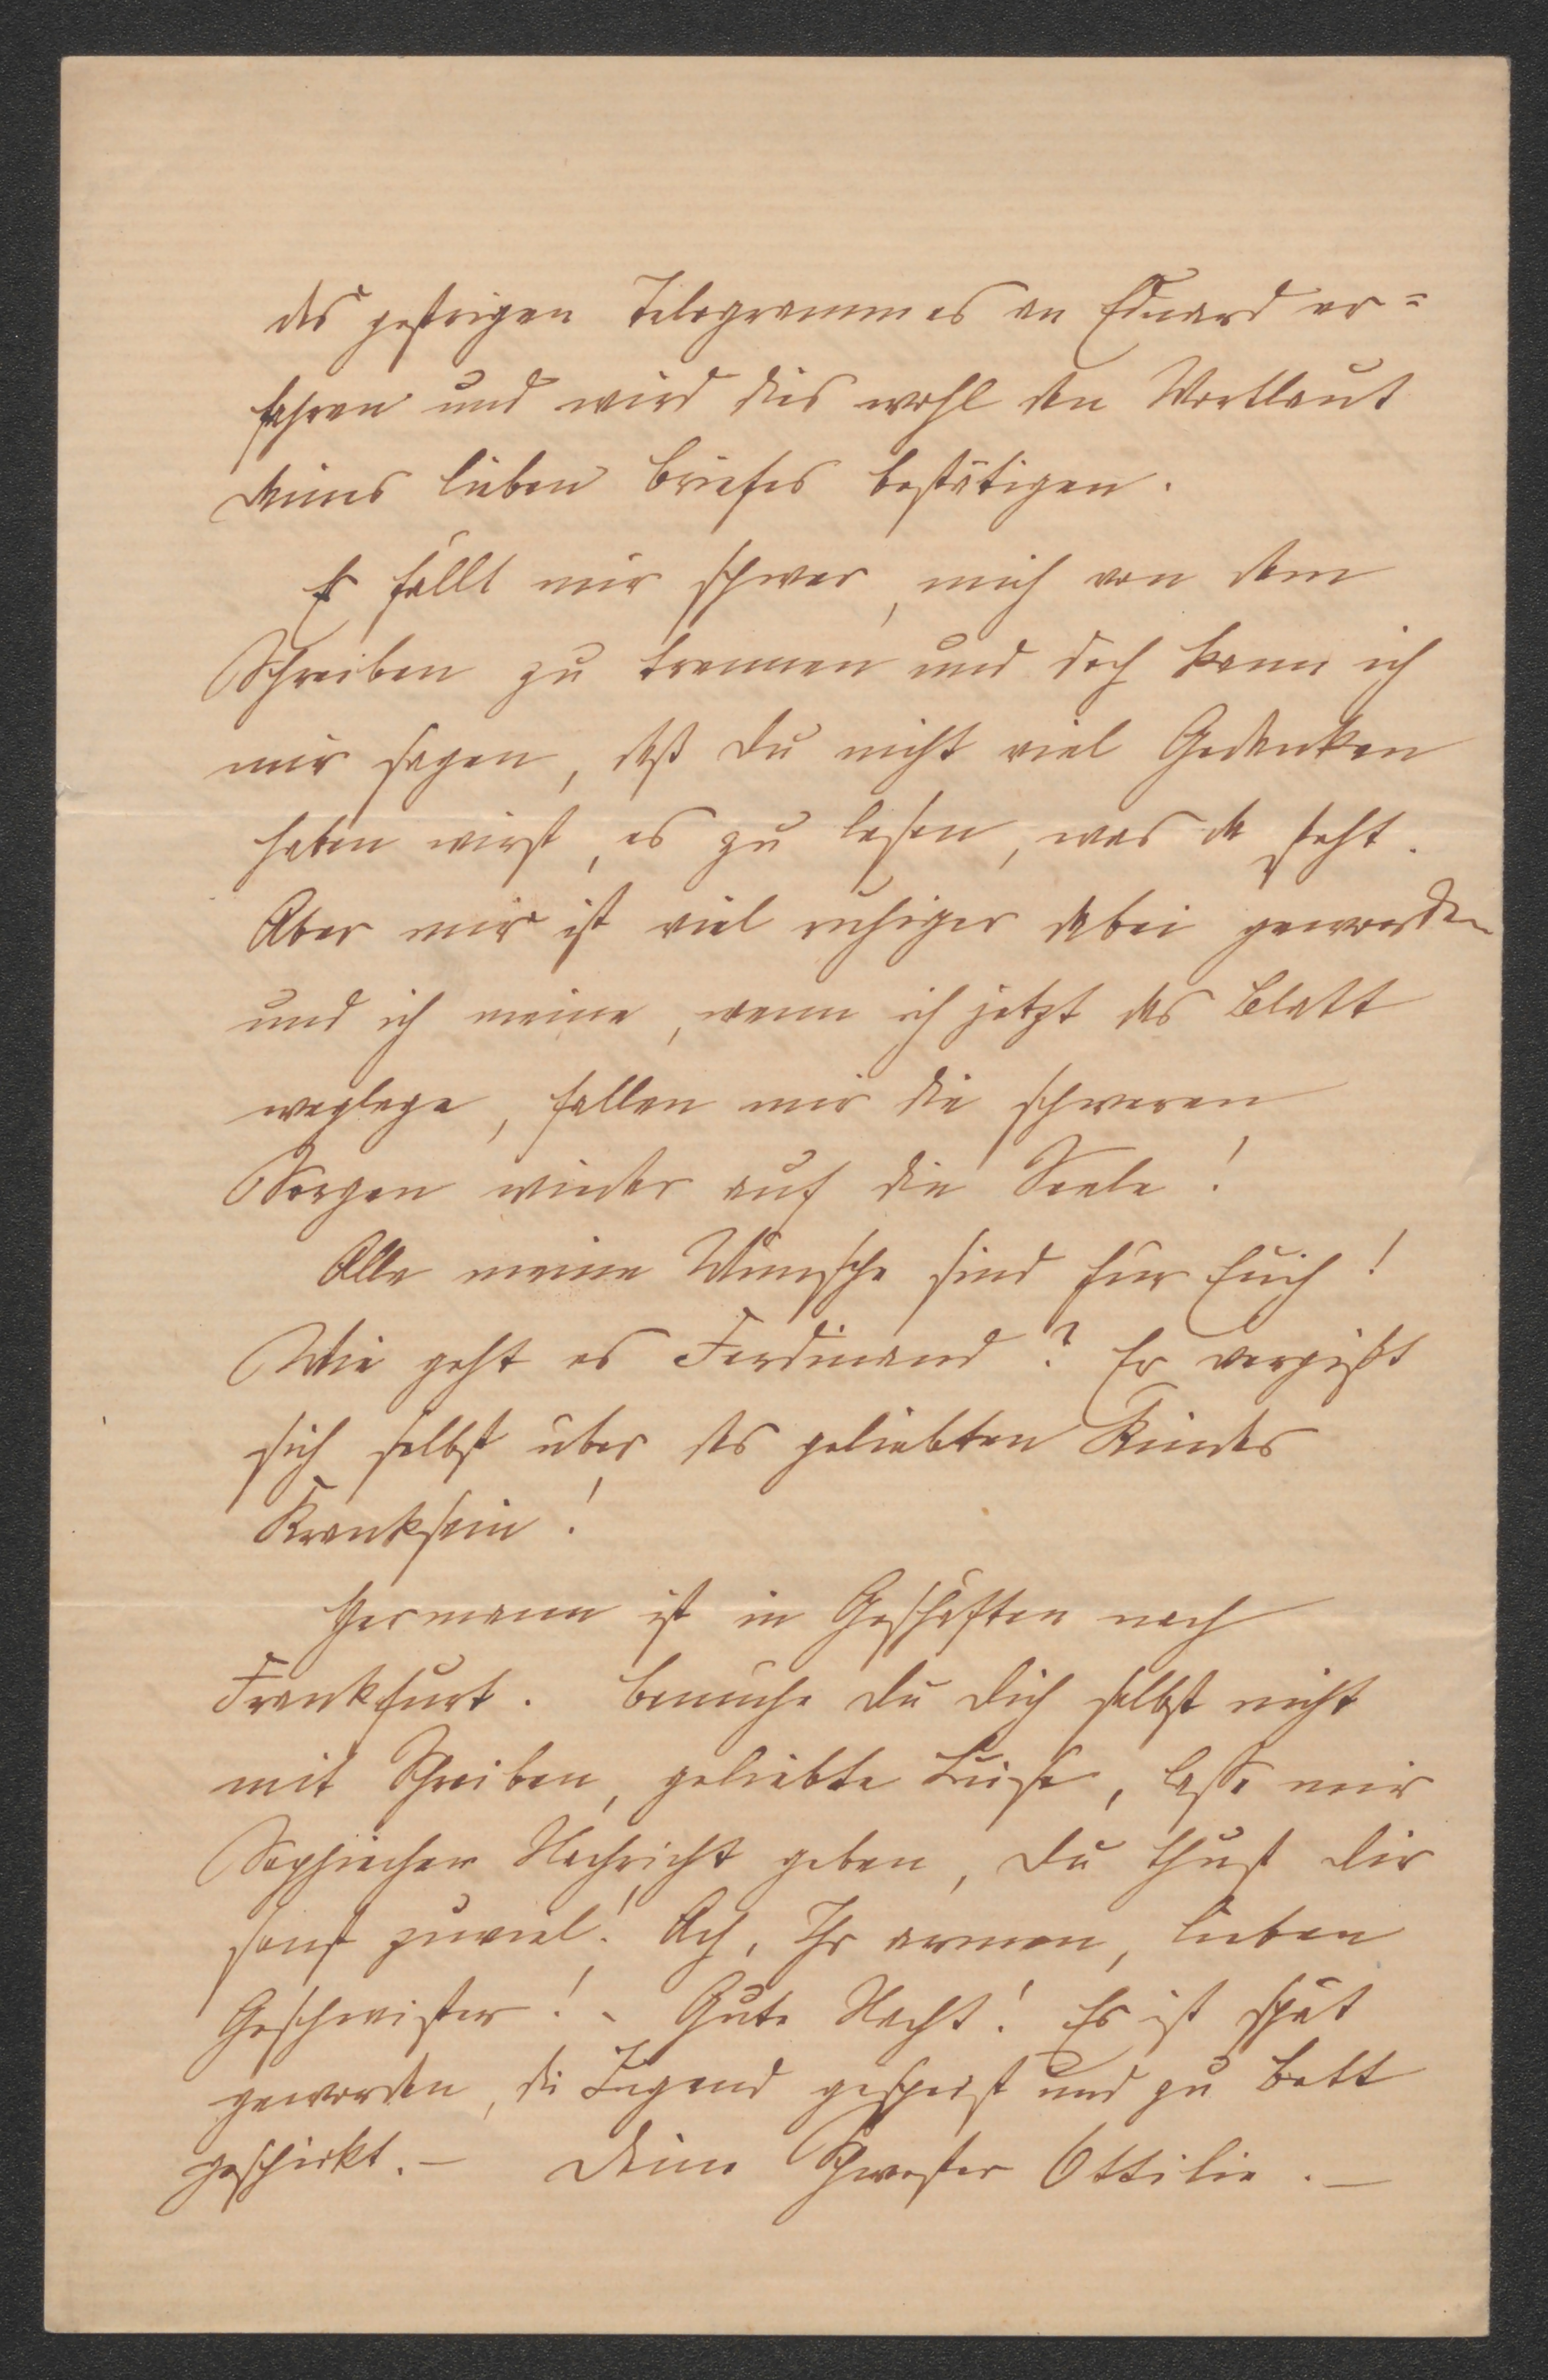 des gestrigen Telegrammes an Eduard er=
fahren und wird dies wohl den Wortlaut
deines lieben Briefes bestätigen.
Es fällt mir schwer, mich von dem
Schreiben zu trennen und doch kann ich
mir sagen, daß Du nicht viel Gedanken
haben wirst, es zu lesen, was da steht.
Aber mir ist viel ruhiger dabei geworden
und ich meine, wenn ich jetzt das Blatt
weglege, fallen mir die schweren
Sorgen wieder auf die Seele!
Alle meine Wünsche sind für Euch!
Wie geht es Ferdinand? Er vergißt
sich selbst über des geliebten Kindes
Kranksein!
Hermann ist in Geschäften nach
Frankfurt. Bemühe Du Dich selbst nicht
mit Schreiben, geliebte Luise, lasse mir
Sophiechen Nachricht geben, Du thust Dir
sonst zuviel! Ach, Ihr armen, lieben
Geschwister! - Gute Nacht! Es ist spät
geworden, die Jugend gespeist und zu Bett
geschickt. — Deine Schwester Ottilie. —